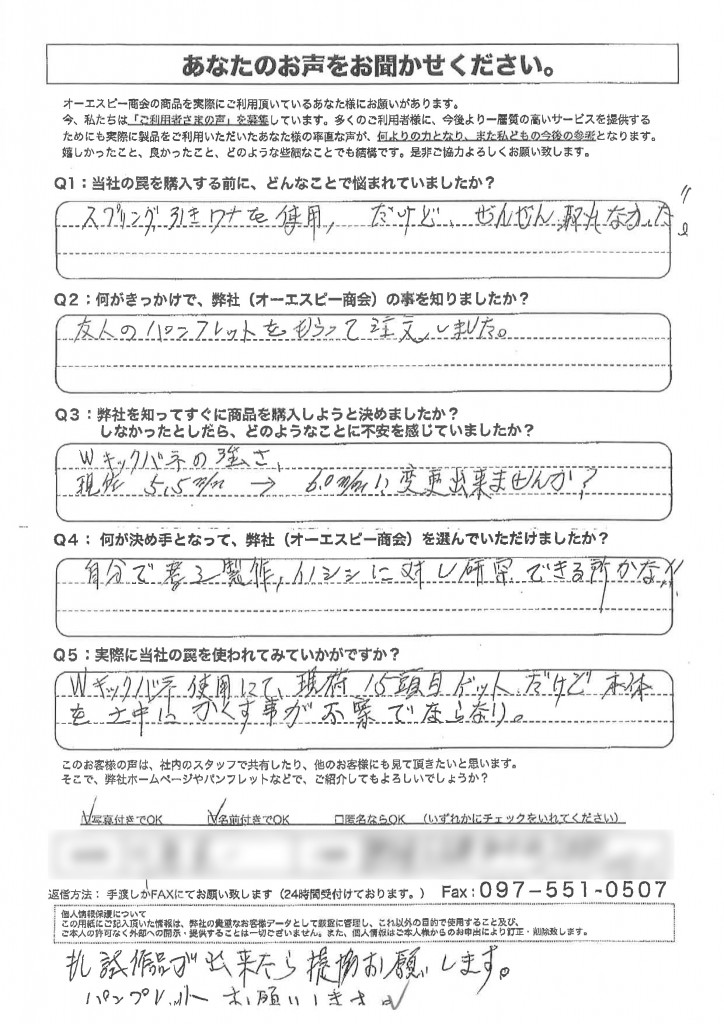 あなたのお声をお聞かせください。
オーエスピー商会の商品を実際にご利用頂いているあなた様にお願いがあります。
今、私たちは「ご利用者さまの声」を募集しています。多くのご利用者様に、今後より一層質の高いサービスを提供する
ためにも実際に製品をご利用いただいたあなた様の率直な声が、何よりの力となり、また私どもの今後の参考となります。
嬉しかったこと、良かったこと、どのような些細なことでも結構です。是非ご協力よろしくお願い致します。
Q1：当社の罠を購入する前に、どんなことで悩まれていましたか？
スプリング引きワナを使用, だけど、ぜんぜん取れなかった
Q2：何がきっかけで、弊社（オーエスピー商会）の事を知りましたか？
友人のパンフレットをもらって注文しました。
Q3：弊社を知ってすぐに商品を購入しようと決めましたか？
しなかったとしたら、どのようなことに不安を感じていましたか？
Wキックバネの強さ、
現在 5.5m/m → 6.0m/mに変更出来ませんか？
Q4：何が決め手となって、弊社（オーエスピー商会）を選んでいただけましたか？
自分で 製作, イノシシに対し研究できる所かな
Q5：実際に当社の罠を使われてみていかがですか？
Wキックバネ使用にて、現在15頭目ゲット だけど本体
を土中にかくす事が不案でならない。
このお客様の声は、社内のスタッフで共有したり、他のお客様にも見て頂きたいと思います。
そこで、弊社ホームページやパンフレットなどで、ご紹介してもよろしいでしょうか？
☑写真付きでOK ☑名前付きでOK □匿名ならOK （いずれかにチェックをいれてください）
返信方法：手渡しかFAXにてお願い致します（24時間受付けております。） Fax：097-551-0507
個人情報保護について
この用紙にご記入頂いた情報は、弊社の貴重なお客様データとして厳重に管理し、これ以外の目的で使用すること及び、
ご本人の許可なく外部への開示・提供することは一切ございません。また、個人情報はご本人様からのお申出により訂正・削除致します。
試作品が出来たら提協お願いします。
パンフレット お願い